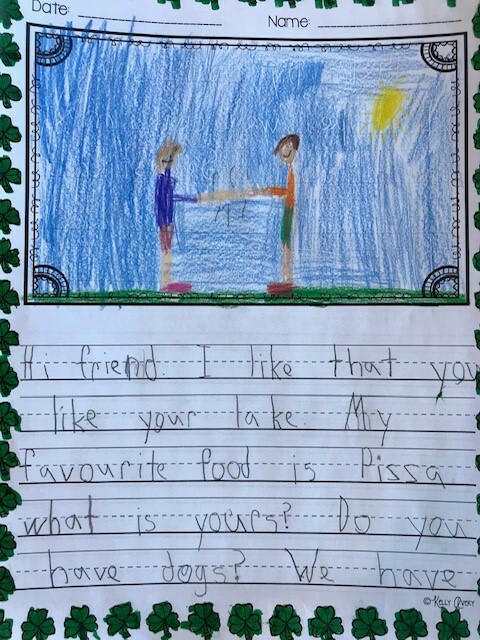 Date: Name:
Hi friend. I like that you
like your lake. My
favourite food is Pissa
what is yours? Do you
have dogs? We have
© Kelly Avery